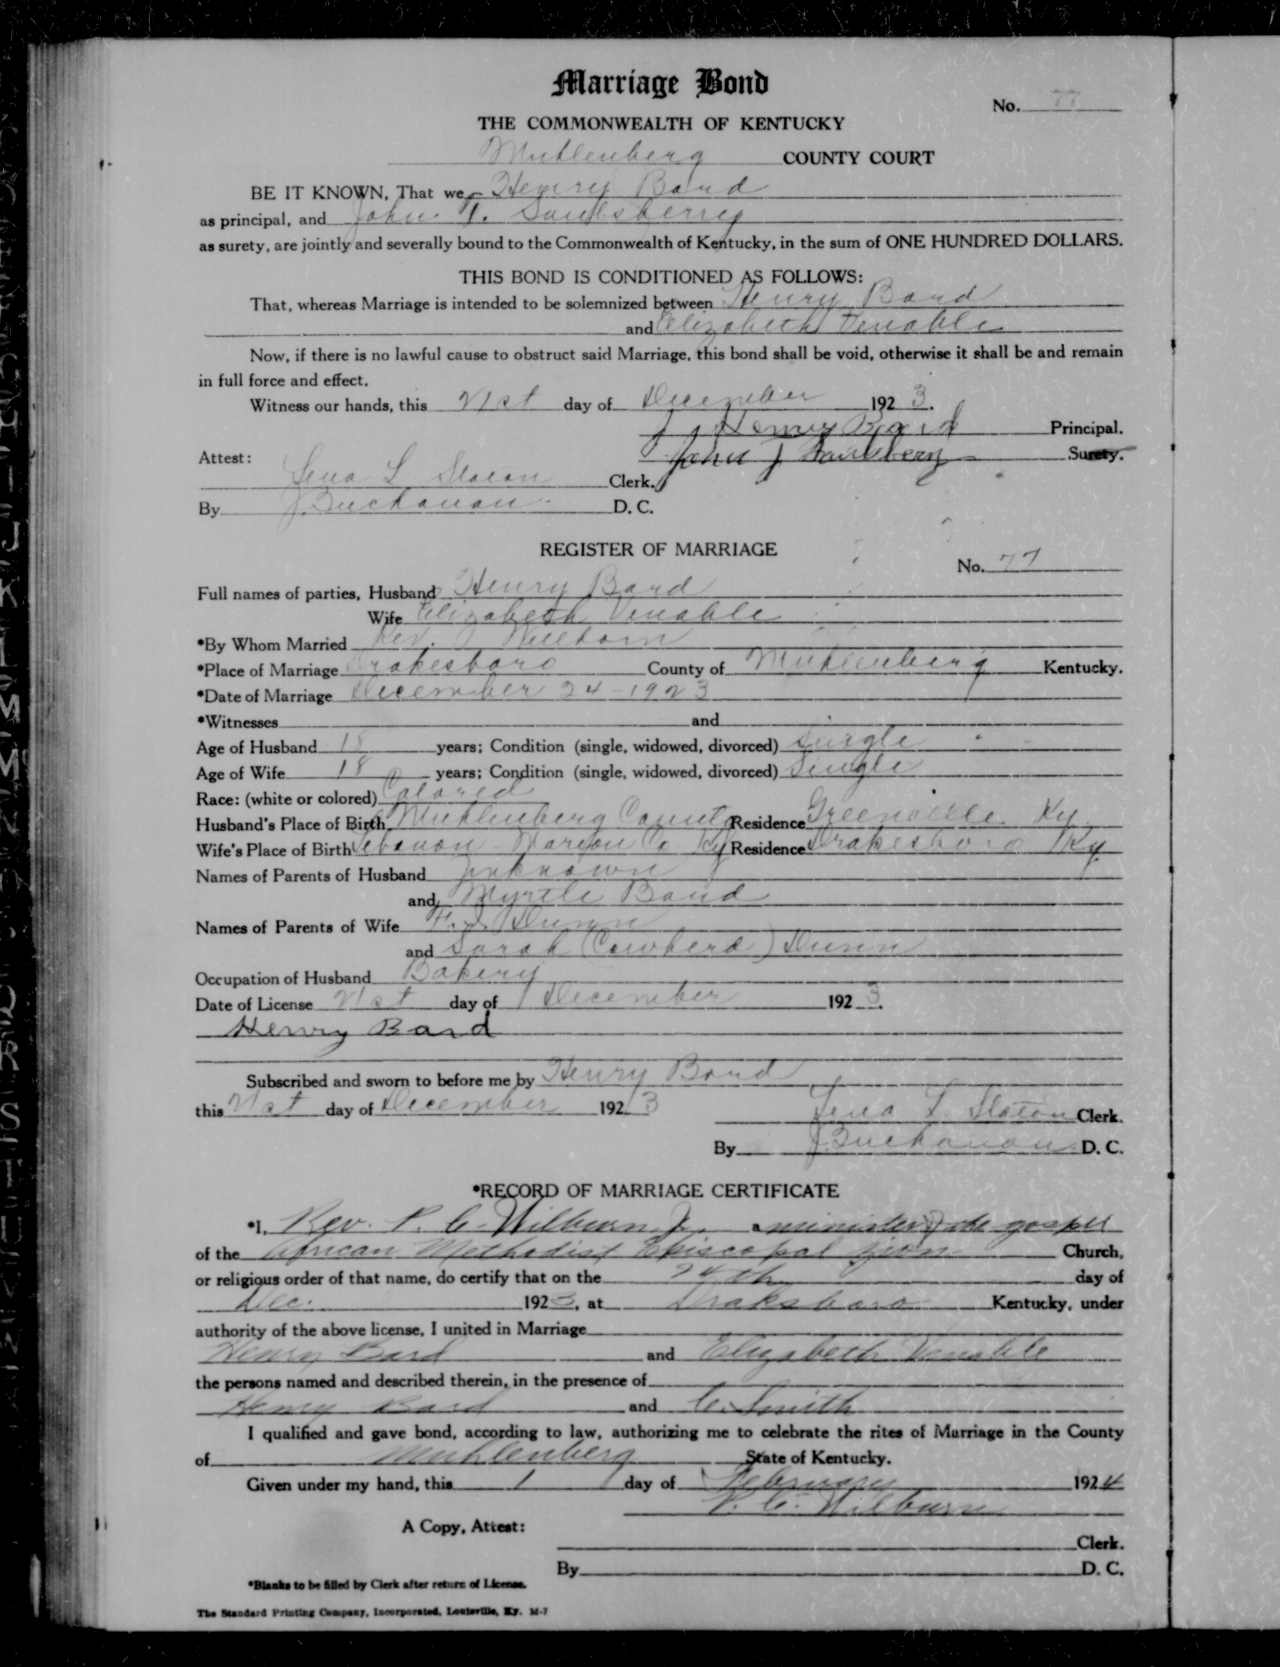 Marriage Bond
No. 77
THE COMMONWEALTH OF KENTUCKY
Muhlenberg COUNTY COURT
BE IT KNOWN, That we, Henry Bard
as principal, and John T. Saulsberry
as surety, are jointly and severally bound to the Commonwealth of Kentucky, in the sum of ONE HUNDRED DOLLARS.
THIS BOND IS CONDITIONED AS FOLLOWS:
That, whereas Marriage is intended to be solemnized between Henry Bard
and Elizabeth Venable
Now, if there is no lawful cause to obstruct said Marriage, this bond shall be void, otherwise it shall be and remain
in full force and effect.
Witness our hands, this 21st day of December 1923.
Henry Bard Principal.
Attest: John Surety.
Lena L Slaton Clerk.
By J. Buchanan D. C.
REGISTER OF MARRIAGE
No. 77
Full names of parties, Husband Henry Bard
Wife Elizabeth Venable
*By Whom Married Rev.
*Place of Marriage Drakesboro County of Muhlenberg Kentucky.
*Date of Marriage December 24-1923
*Witnesses and
Age of Husband 18 years; Condition (single, widowed, divorced) Single
Age of Wife 18 years; Condition (single, widowed, divorced) Single
Race: (white or colored) Colored
Husband's Place of Birth Muhlenberg County Residence Greenville Ky
Wife's Place of Birth Lebanon - Marion Co. Ky Residence Drakesboro Ky.
Names of Parents of Husband unknown
and Myrtle Bard
Names of Parents of Wife F. J. Dunn
and Sarah (Cowherd) Dunn
Occupation of Husband Bakery
Date of License 21st day of December 1923.
Henry Bard
Subscribed and sworn to before me by Henry Bard
this 21st day of December 1923
Lena L. Slaton Clerk.
By J. Buchanan D. C.
*RECORD OF MARRIAGE CERTIFICATE
*I, Rev. P. C. Wilburn Jr. a minister of the gospel
of the African Methodist Episcopal Zion Church,
or religious order of that name, do certify that on the 24th day of
Dec. 1923, at Draksboro Kentucky, under
authority of the above license, I united in Marriage
Henry Bard and Elizabeth Venable
the persons named and described therein, in the presence of
Henry Bard and C. Smith
I qualified and gave bond, according to law, authorizing me to celebrate the rites of Marriage in the County
of Muhlenberg State of Kentucky.
Given under my hand, this 1 day of February 1924
P. C. Wilburn
A Copy, Attest:
Clerk.
By D. C.
*Blanks to be filled by Clerk after return of License.
The Standard Printing Company, Incorporated, Louisville, Ky. M-7